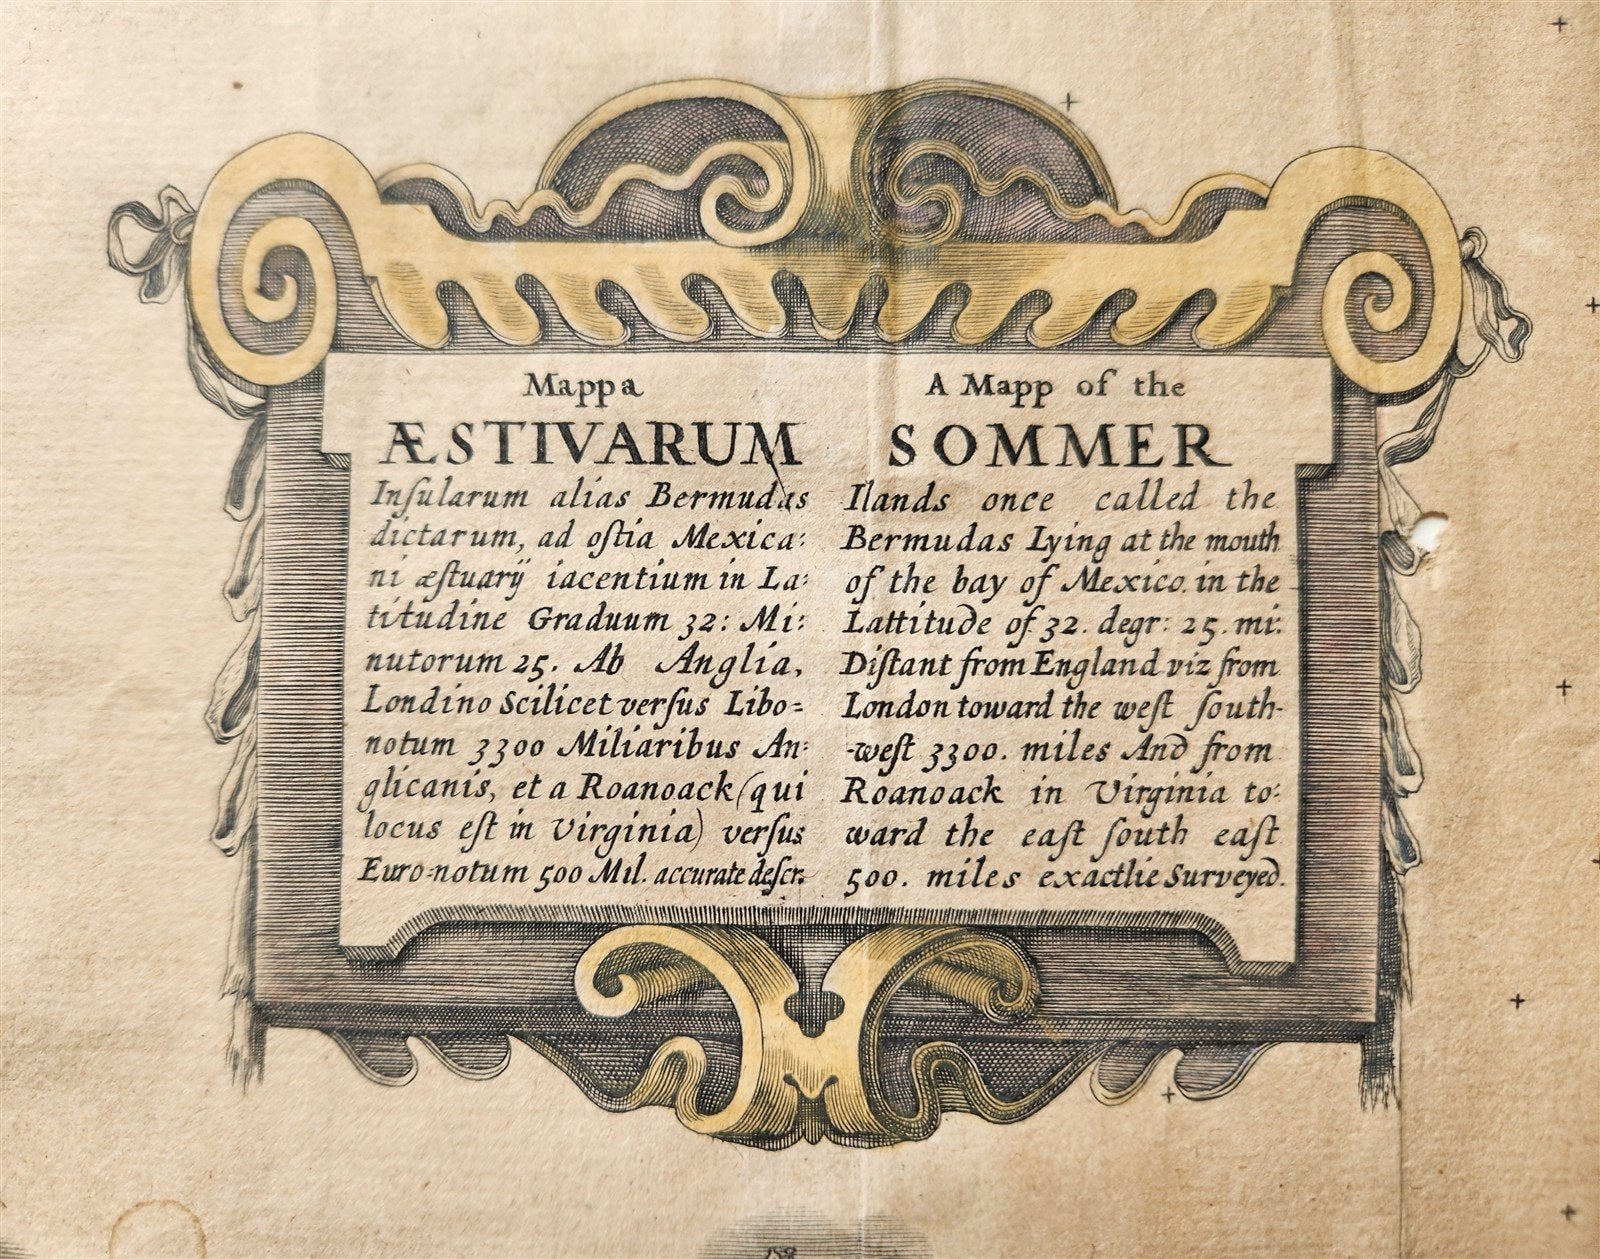 Mappa
ÆSTIVARUM
Inſularum alias Bermudas
dictarum, ad oſtia Mexica:
ni æſtuarÿ iacentium in La:
titudine Graduum 32: Mi:
nutorum 25. Ab Anglia,
Londino Scilicet verſus Libo=
notum 3300 Miliaribus An:
glicanis, et a Roanoack (qui
locus eſt in Virginia) verſus
Euro=notum 500 Mil. accurate deſcr:
A Mapp of the
SOMMER
Ilands once called the
Bermudas Lying at the mouth
of the bay of Mexico. in the
Lattitude of 32. degr: 25. mi:
Diſtant from England viz from
London toward the weſt ſouth-
-weſt 3300. miles And from
Roanoack in Virginia to:
ward the eaſt ſouth eaſt
500. miles exactlie Surveyed.